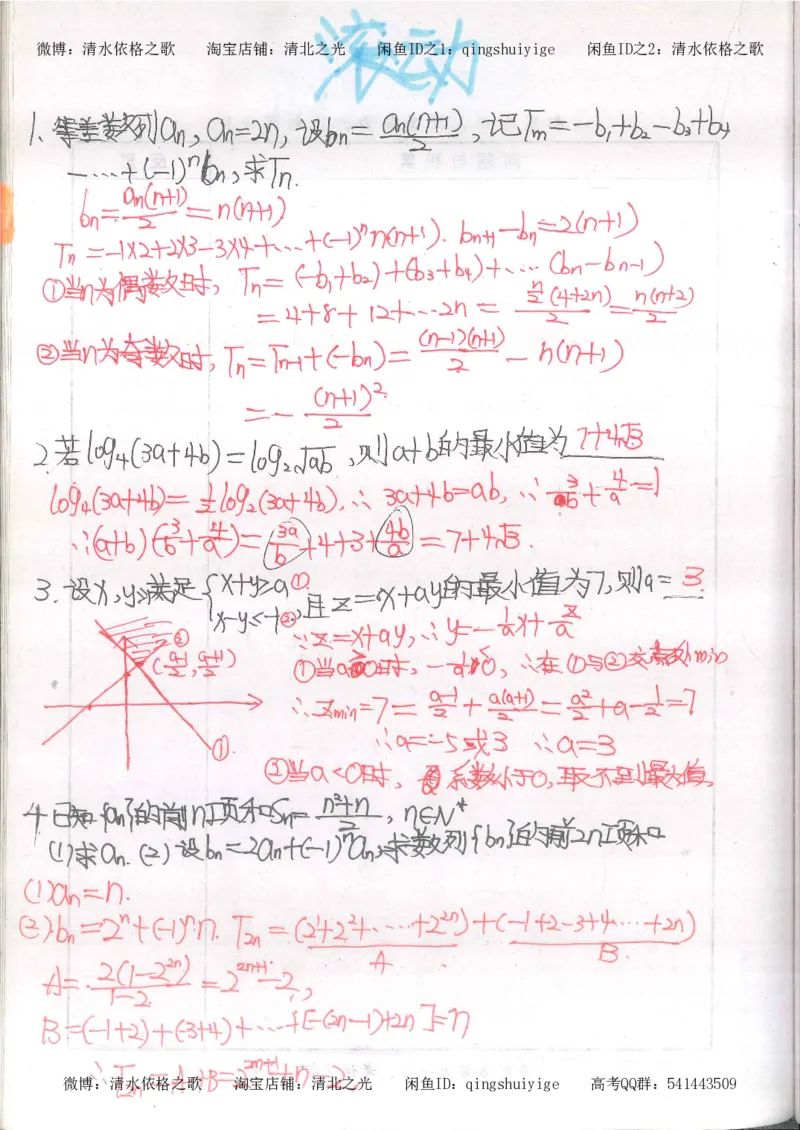 微博：清水依格之歌 淘宝店铺：清北之光 闲鱼ID之1：qingshuiyige 闲鱼ID之2：清水依格之歌
滚运动
1. 等差数列an, an=2n, 设bn= an(n+1)/2, 记Tn=-b₁+b₂-b₃+b₄
-…+(-1)ⁿbn, 求Tn.
bn= an(n+1)/2 = n(n+1)
Tn=-1×2+2×3-3×4+…+(-1)ⁿn(n+1). bn+1-bn=2(n+1)
①当n为偶数时, Tn=(-b₁+b₂)+(-b₃+b₄)+…(bn-bn-1)
=4+8+12+…2n= n/2(4+2n)/2 = n(n+2)/2
②当n为奇数时, Tn=Tn-1+(-bn)= (n-1)(n+1)/2 - n(n+1)
=- (n+1)²/2
2. 若log₄(3a+4b)=log₂√ab, 则a+b的最小值为 7+4√3
log₄(3a+4b)=½log₂(3a+4b), ∴3a+4b=ab, ∴ 3/b + 4/a =1
∴(a+b)(3/b+4/a)= 3a/b +4+3+ 4b/a =7+4√3.
3. 设x,y满足{x+y≥a① x-y≤-1②, 且z=x+ay的最小值为7, 则a= 3.
∵z=x+ay, ∴y=-1/a x+ z/a
② (a-1/2, a+1/2)
①当a>0时, -1/a<0, ∴在①与②交点处min
∴zmin=7= a-1/2 + a(a+1)/2 = a²/2 +a- 1/2 =7
∴a=-5或3 ∴a=3
①
②当a<0时, 系数小于0, 取不到最小值.
4. 已知{an}的前n项和Sn= n²+n/2, n∈N*
(1)求an. (2)设bn=2an+(-1)ⁿan, 求数列{bn}的前2n项和
(1)an=n.
(2)bn=2ⁿ+(-1)ⁿn. T2n=(2¹+2²+…+2²ⁿ)+(-1+2-3+4…+2n)
A B.
A= 2(1-2²ⁿ)/1-2 =2²ⁿ⁺¹-2,
B=(-1+2)+(-3+4)+…+[-(2n-1)+2n]=n
∴T2n=A+B=2²ⁿ⁺¹+n-2
微博：清水依格之歌 淘宝店铺：清北之光 闲鱼ID：qingshuiyige 高考QQ群：541443509